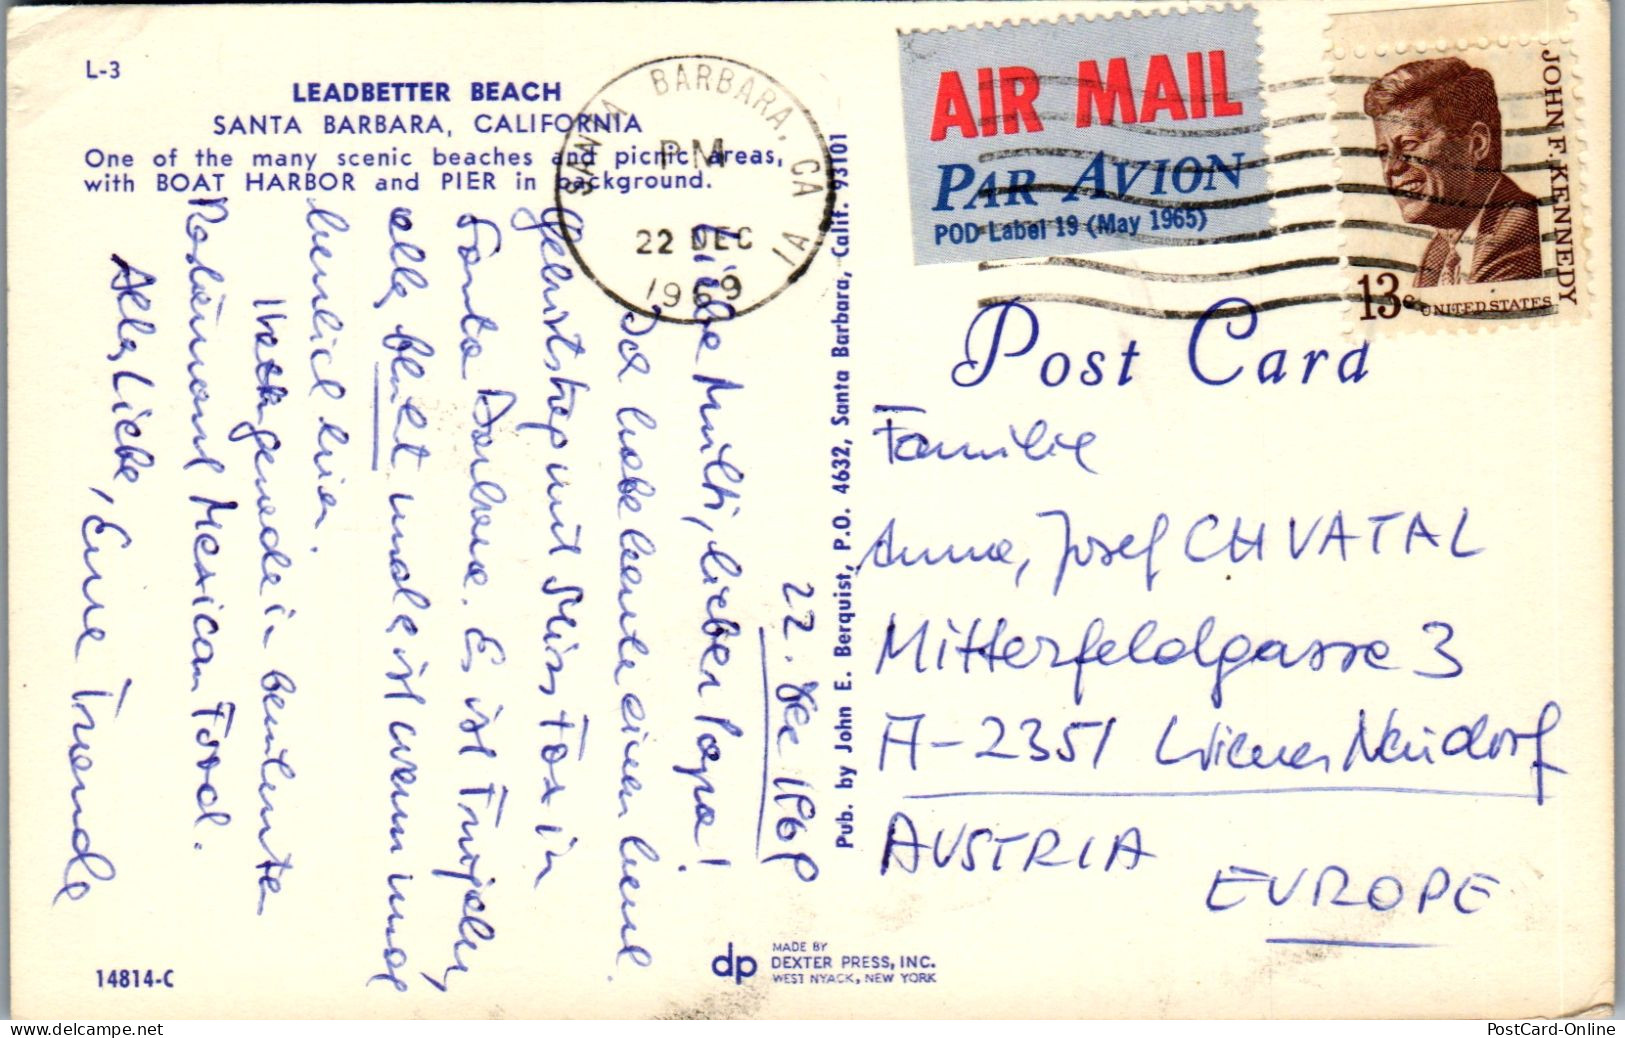 L-3
LEADBETTER BEACH
SANTA BARBARA, CALIFORNIA
One of the many scenic beaches and picnic areas,
with BOAT HARBOR and PIER in background.
SANTA BARBARA, CA
PM
22 DEC
1969
AIR MAIL
PAR AVION
POD Label 19 (May 1965)
JOHN F. KENNEDY
13c UNITED STATES
Post Card
22. Dec 1969
Liebe Mutti, lieber Papa!
Ich habe heute einen
mit Miss Fox in
Santa Barbara. Es ist
alles blüht und es ist warm und
herrlich hier.
in berühmten
Restaurant Mexican Food.
Alles Liebe, Eure Traude
Pub. by John E. Berquist, P.O. 4632, Santa Barbara, Calif. 93101
Familie
Anna, Josef CHVATAL
Mitterfeldgasse 3
A-2351 Wiener Neudorf
AUSTRIA
EUROPE
14814-C
dp
MADE BY
DEXTER PRESS, INC.
WEST NYACK, NEW YORK
PostCard-Online
www.delcampe.net